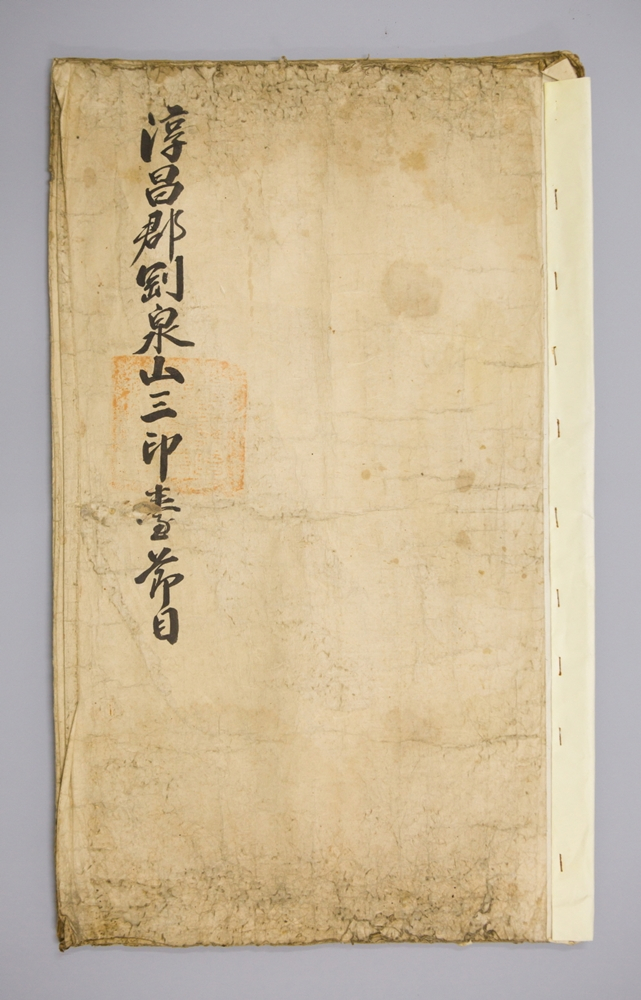 淳昌郡剛泉山三印臺節目